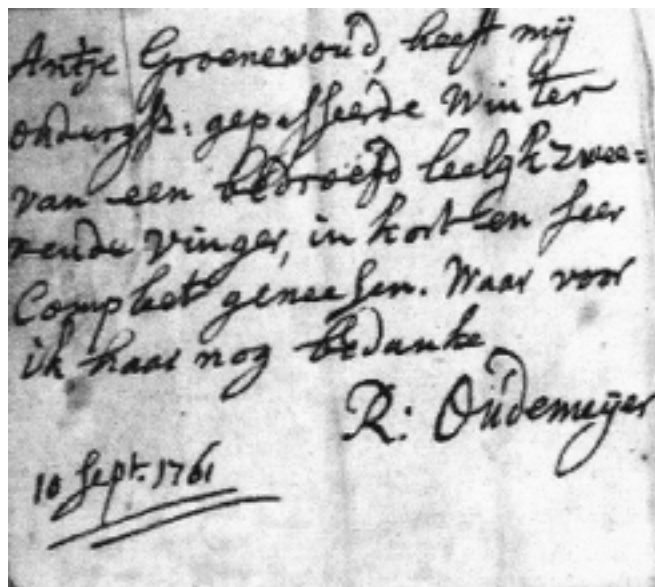 Antje Groenewoud, heeft mij
onlangst: gepasseerde Winter
van een bedroefd leelijk zwee=
rende vinger, in kort en seer
Compleet geneesen. Waar voor
ik haar nog bedanke
R: Oudemeijer
10 Sept. 1761